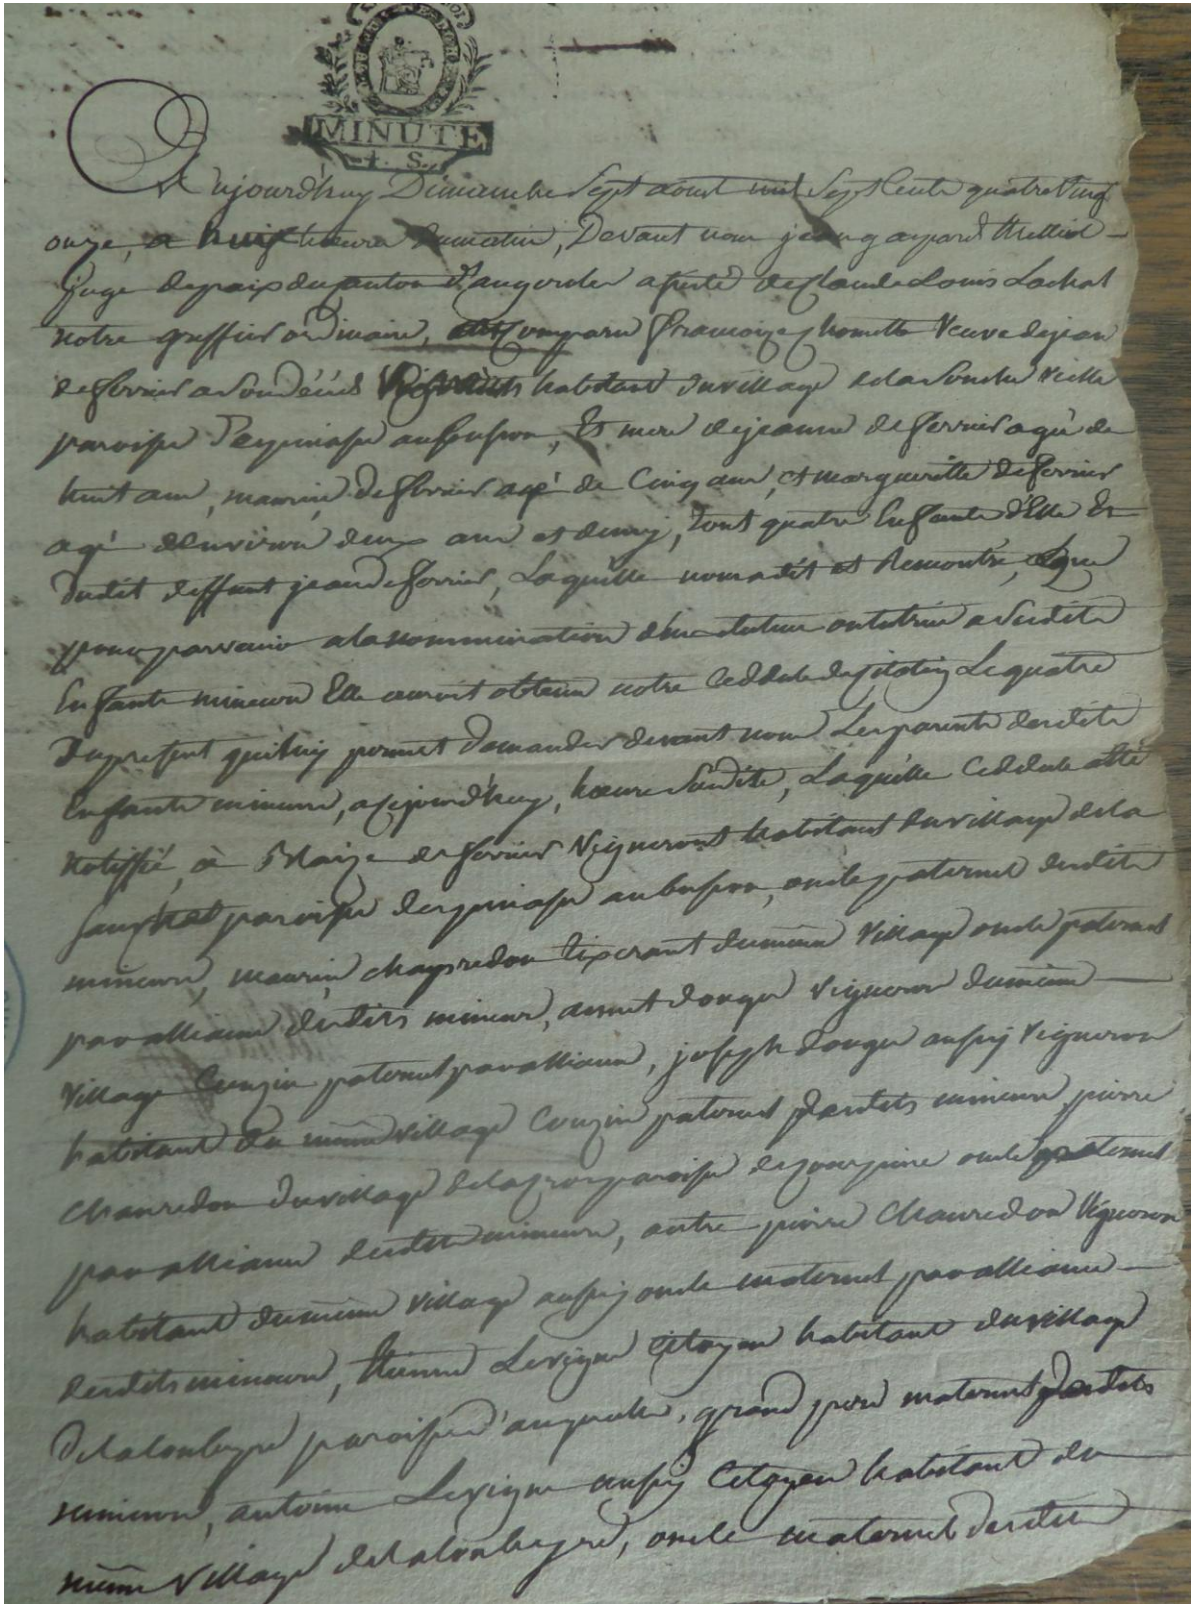 MINUTE
Aujourd'huy Dimanche Sept aout mil Sept Cents quatre Vingt
onze, a huit heure du matin, Devant nous jean gaspard
juge de paix du canton d'augerolles assisté de Claude Louis Lachat
notre greffier ordinaire, Comparu françoize Veuve de jean
deferrier a son décéds Vigneront habitant du village de la vielle
paroisse D'espinasse aubusson, Et mere de jeanne deferrier agé de
huit ans, maurice Deferrier agé de Cinq ans, et margueritte deferrier
agé d'environ deux ans et demy, tout quatre Enfants d'Elle Et
dudit deffunt jean deferrier, Laquelle nous a dit et Remontré, que
pour parvenir a la nommination d'un tuteur ou tutrice a Sesdits
Enfants mineurs Elle auroit obtenu notre Ceddule de Citation Le quatre
du present qui luy permet d'amander devant nous Les parents desdits
Enfants mineurs, a cejourd'huy, heure Susdite, Laquelle Ceddule a été
Notiffié, à Blaize deferrier Vigneront habitant du village de la
paroisse despinasse aubusson, oncle paternel desdits
mineurs, maurice chapredon du même Village oncle paternel
par alliance desdits mineurs, annet douge Vigneron du même
Village Couzin paternel par alliance, joseph douge aussy Vigneron
habitant du même village Couzin paternel desdits mineurs, pierre
Chauredon du village de paroisse de oncle maternel
par alliance desdits mineurs, autre pierre Chauredon Vigneron
habitant du même Village aussy oncle maternel par alliance
desdits mineurs, Etienne Levigne Citoyen habitant du village
de paroisse d'augerolles, grand pere maternel desdits
mineurs, antoine Levigne aussy Citoyen habitant du
même Village de, oncle maternel desdits